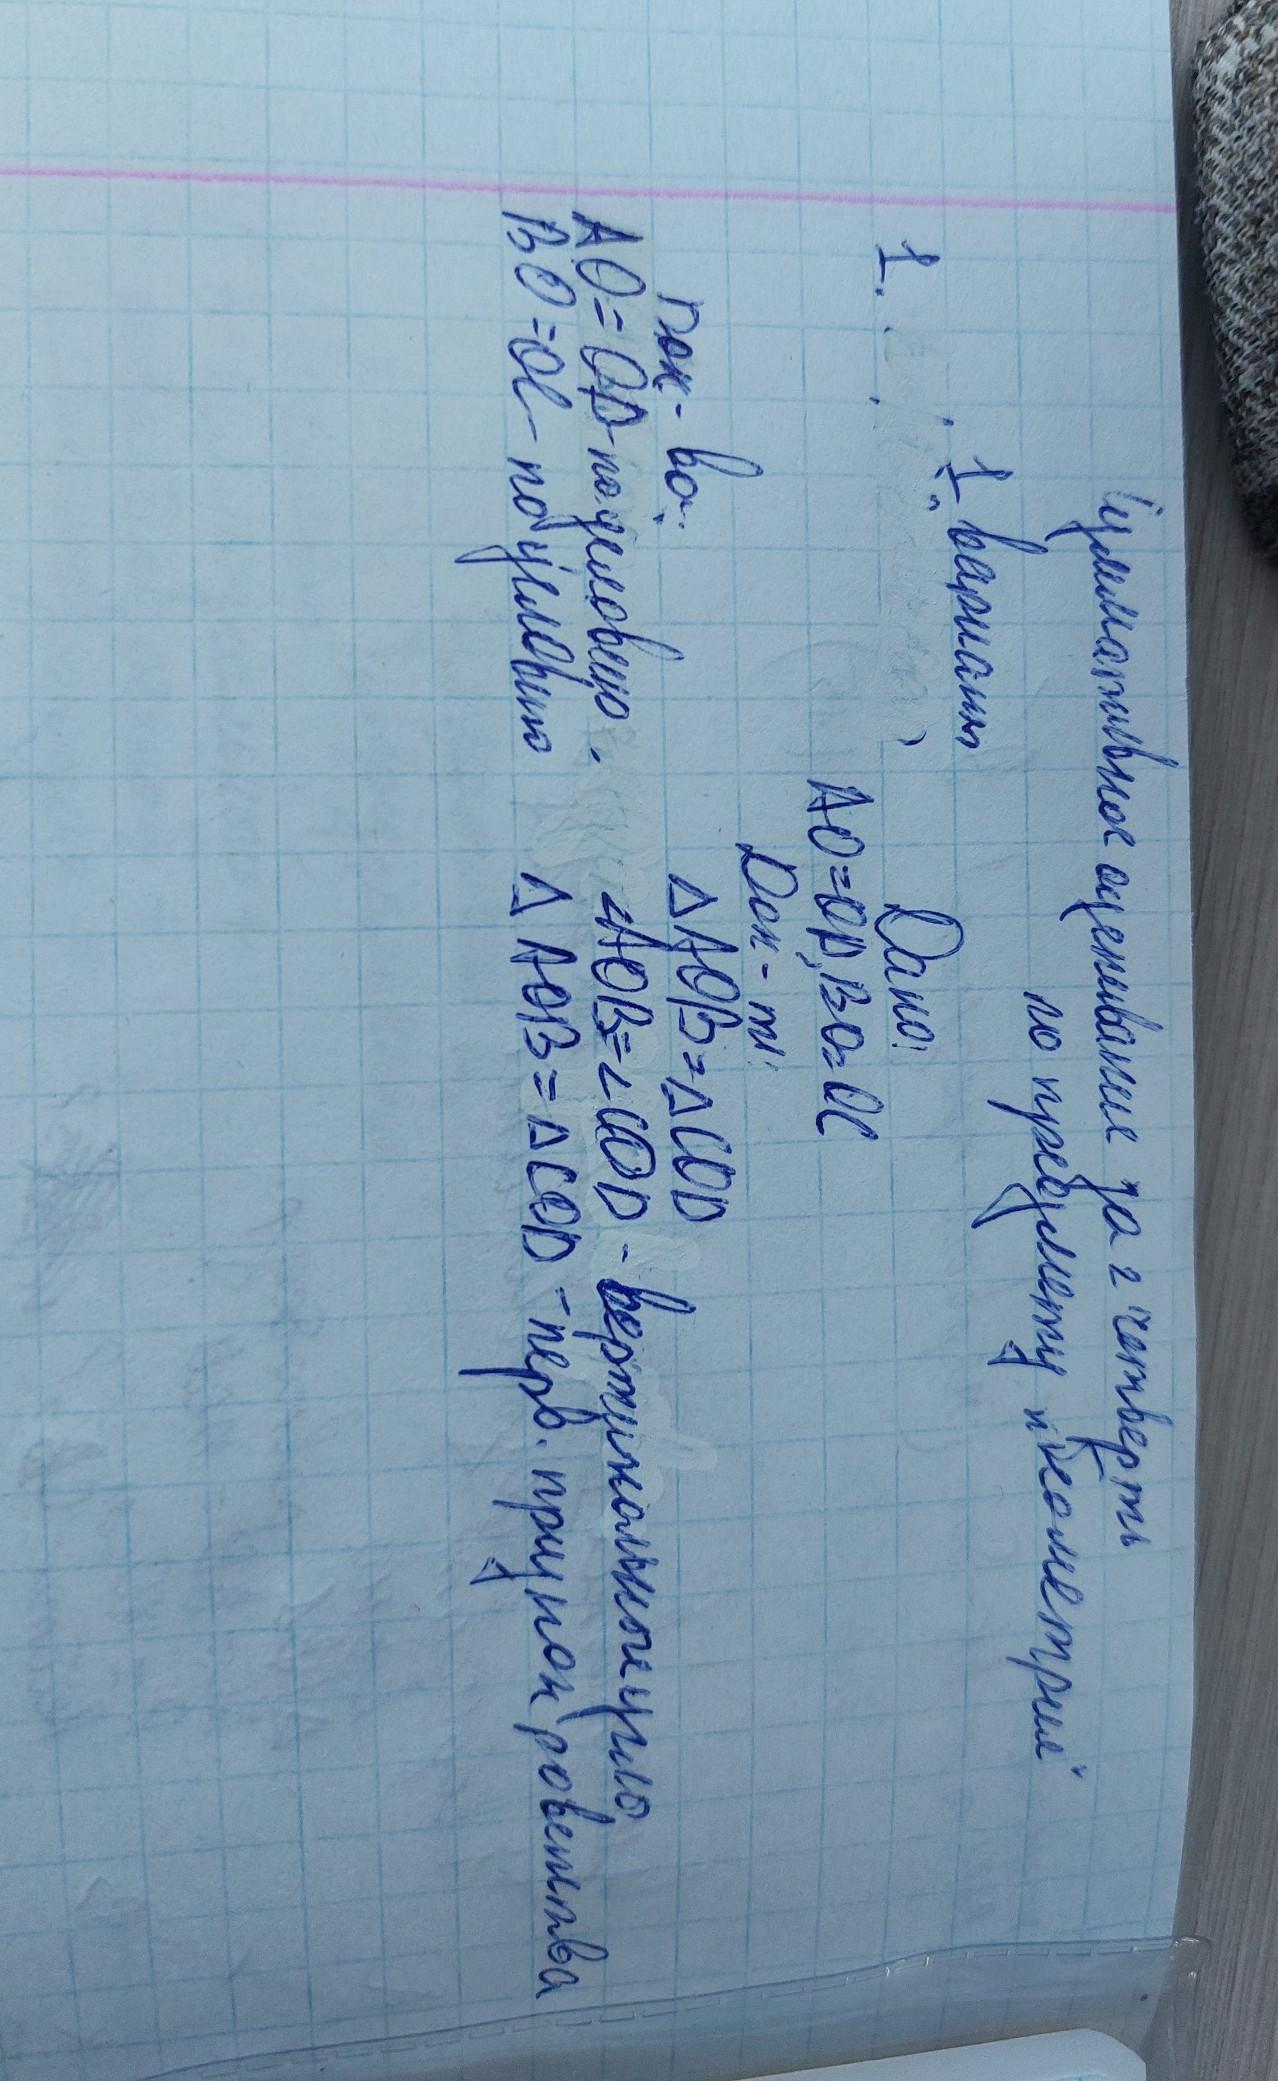 Суммативное оценивание за 2 четверть
по предмету "Геометрия"
1 вариант
1.
Дано:
AO=OD, BO=OC
Док-ть:
∆AOB=∆COD
Док-во:
AO=OD-по условию. ∠AOB=∠COD - вертикальные угло
BO=OC- по условию ∆AOB=∆COD - перв. призрок ровенства